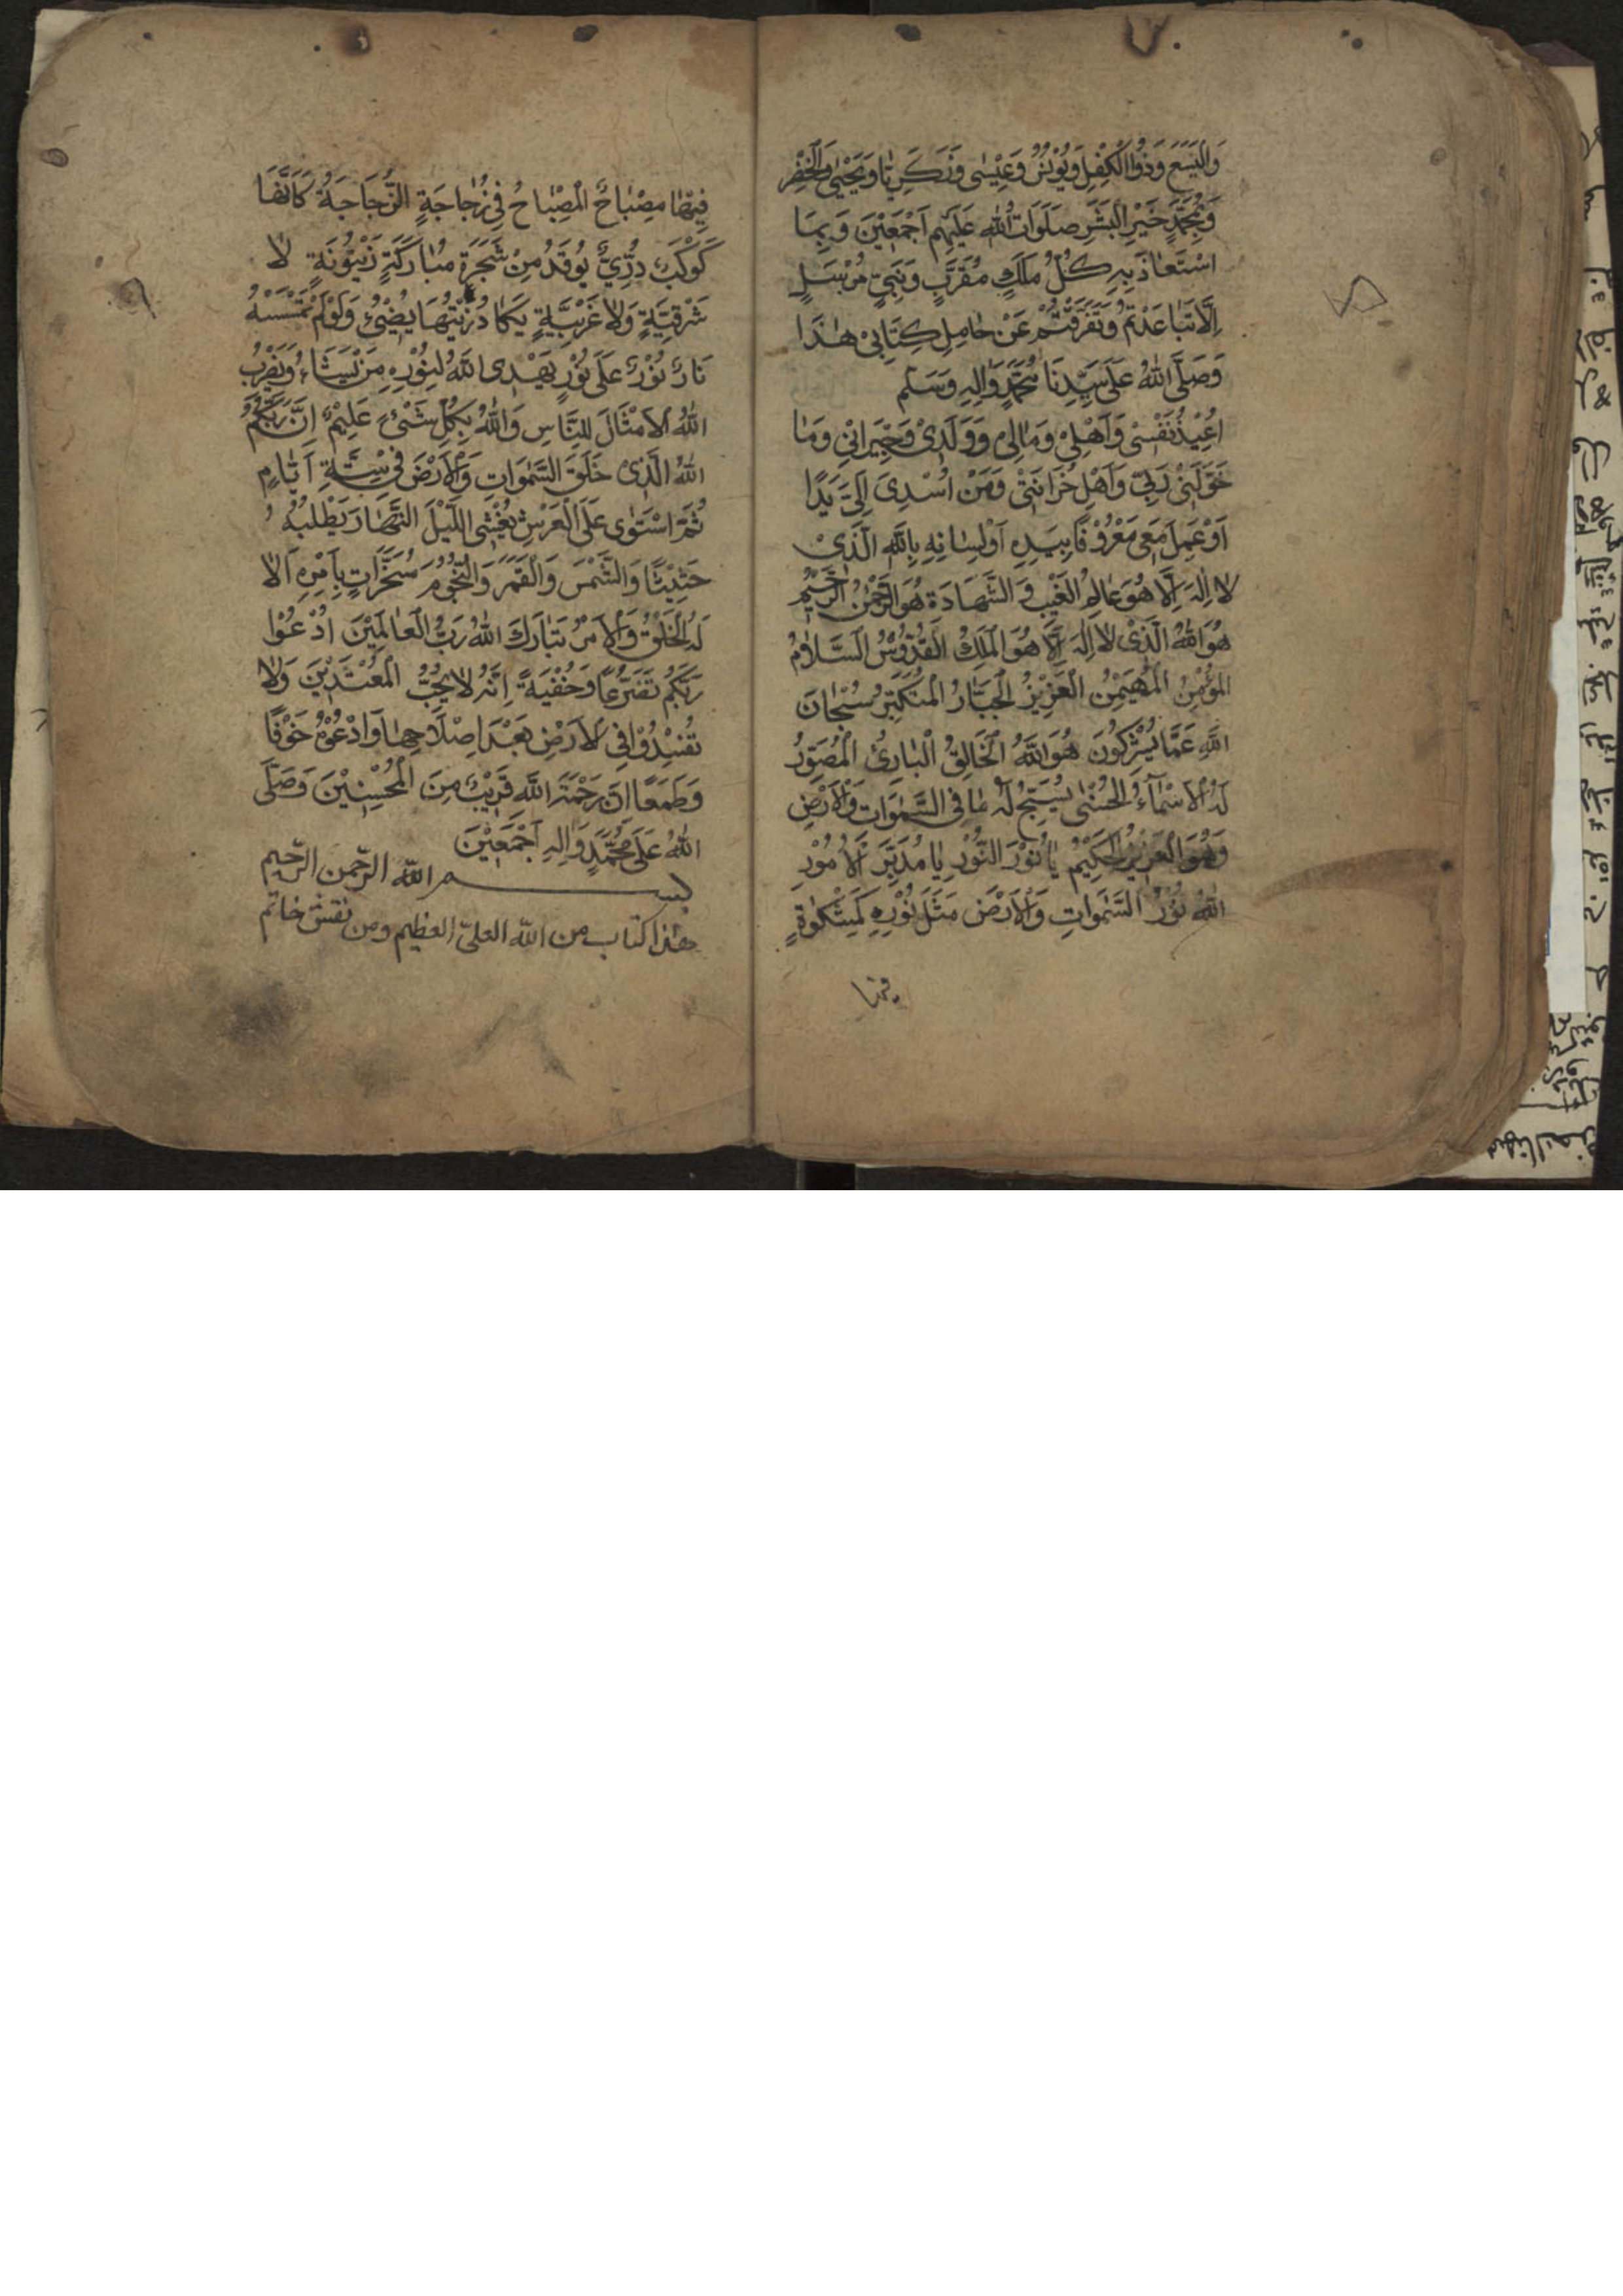 وَالْيَسَعَ وَذُوالْكِفْلِ وَيُوْنُسُ وَعِيْسٰى وَزَكَرِيَّا وَيَحْيٰى وَالْخِضْرِ
وَبِمُحَمَّدٍ خَيْرِ الْبَشَرِ صَلَوَاتُ اللّٰهِ عَلَيْهِم اَجْمَعِيْنَ وَبِمَا
اسْتَعَاذَ بِهِ كُلُّ مَلَكٍ مُقَرَّبٍ وَنَبِيٍّ مُرْسَلٍ
اِلَّا تَبَاعَدْتُمْ وَتَفَرَّقْتُمْ عَنْ حَامِلِ كِتَابِيْ هٰذَا
وَصَلَّى اللّٰهُ عَلٰى سَيِّدِنَا مُحَمَّدٍ وَاٰلِهِ وَسَلَّم
اُعِيْذُ نَفْسْى وَاَهْلِىْ وَمَالِىْ وَوَلَدِىْ وَجِيْرَانِىْ وَمَا
خَوَّلَنِىْ رَبِّىْ وَاَهْلِ خُزَانَتِىْ وَمَنْ اَسْدِىَ اِلَىَّ يَدًا
اَوْ عَمِلَ مَعِى مَعْرُوْفًا بِيَدِهِ اَوْ لِسَانِهِ بِاللّٰهِ الَّذِىْ
لَا اِلٰهَ اِلَّا هُوَ عَالِمُ الْغَيْبِ وَ الشَّهَادَةِ هُوَ الرَّحْمٰنُ الرَّحِيْمُ
هُوَ اللّٰهُ الَّذِىْ لَا اِلٰهَ اِلَّا هُوَ الْمَلِكُ الْقُدُّوْسُ السَّلَامُ
الْمُؤْمِنُ الْمُهَيْمِنُ الْعَزِيْزُ الْجَبَّارُ الْمُتَكَبِّرُ سُبْحَانَ
اللّٰهِ عَمَّا يُشْرِكُونَ هُوَ اللّٰهُ الْخَالِقُ الْبَارِئُ الْمُصَوِّرُ
لَهُ الْاَسْمَآءُ الْحُسْنٰى يُسَبِّحُ لَهُ مَا فِى السَّمٰوَاتِ وَالْاَرْضِ
وَهُوَ الْعَزِيْزُ الْحَكِيْمُ يَا نُوْرَ النُّوْرِ يَا مُدَبِّرَ الْاُمُوْرِ
اللّٰهُ نُوْرُ السَّمٰوَاتِ وَالْاَرْضِ مَثَلُ نُوْرِهِ كَمِشْكٰوةٍ
فيها
فِيْهَا مِصْبَاحٌ الْمِصْبَاحُ فِى زُجَاجَةٍ الزُّجَاجَةُ كَاَنَّهَا
كَوْكَبٌ دُرِّيٌّ يُوقَدُ مِنْ شَجَرَةٍ مُبَارَكَةٍ زَيْتُونَةٍ لَا
شَرْقِيَّةٍ وَلَا غَرْبِيَّةٍ يَكَادُ زَيْتُهَا يُضِىْءُ وَلَوْ لَمْ تَمْسَسْهُ
نَارٌ نُوْرٌ عَلٰى نُوْرٍ يَهْدِى اللّٰهُ لِنُوْرِهِ مَنْ يَشَاءُ وَيَضْرِبُ
اللّٰهُ الْاَمْثَالَ لِلنَّاسِ وَاللّٰهُ بِكُلِّ شَىْءٍ عَلِيْمٌ اِنَّ رَبَّكُمُ
اللّٰهُ الَّذِى خَلَقَ السَّمٰوَاتِ وَالْاَرْضَ فِى سِتَّةِ اَيَّامٍ
ثُمَّ اسْتَوٰى عَلَى الْعَرْشِ يُغْشِى اللَّيْلَ النَّهَارَ يَطْلُبُهُ
حَثِيْثًا وَالشَّمْسَ وَالْقَمَرَ وَالنُّجُوْمَ مُسَخَّرَاتٍ بِاَمْرِهِ اَلَا
لَهُ الْخَلْقُ وَالْاَمْرُ تَبَارَكَ اللّٰهُ رَبُّ الْعَالَمِيْنَ اُدْعُوْا
رَبَّكُمْ تَضَرُّعًا وَخُفْيَةً اِنَّهُ لَا يُحِبُّ الْمُعْتَدِيْنَ وَلَا
تُفْسِدُوْا فِى الْاَرْضِ بَعْدَ اِصْلَاحِهَا وَادْعُوْهُ خَوْفًا
وَطَمَعًا اِنَّ رَحْمَةَ اللّٰهِ قَرِيْبٌ مِنَ الْمُحْسِنِيْنَ وَصَلَّى
اللّٰهُ عَلٰى مُحَمَّدٍ وَاٰلِهِ اَجْمَعِيْنَ
بسم اللّه الرّحمن الرّحيم
هذا كتاب من اللّه العلىّ العظيم ومن نقش خاتم